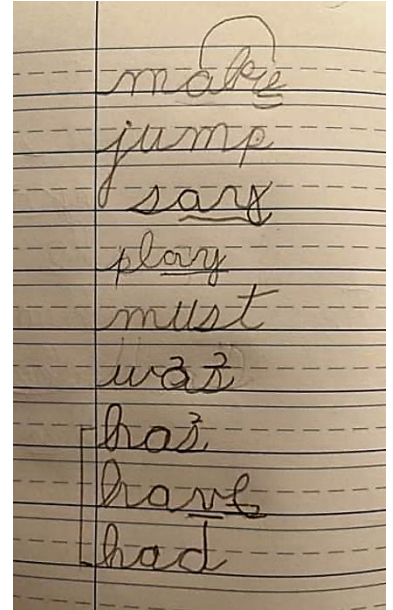 make
jump
say
play
must
was
has
have
had